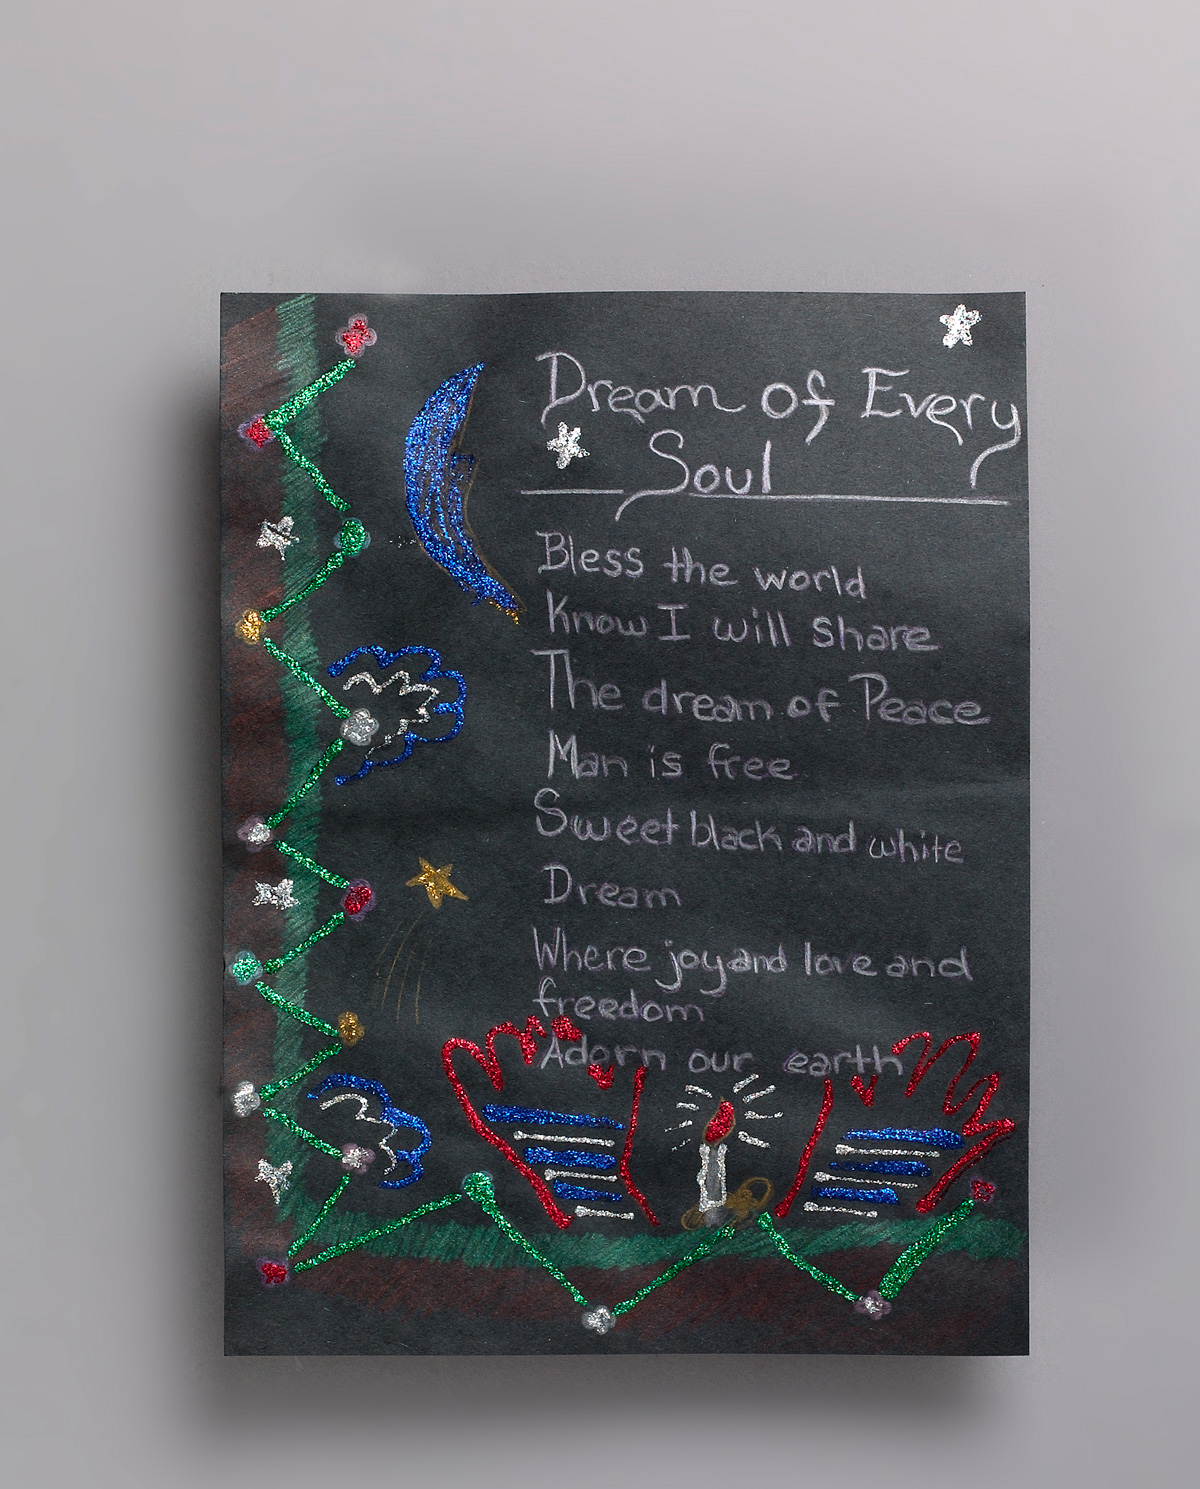 Dream of Every
Soul
Bless the world
Know I will share
The dream of Peace
Man is free
Sweet black and white
Dream
Where joy and love and
freedom
Adorn our earth